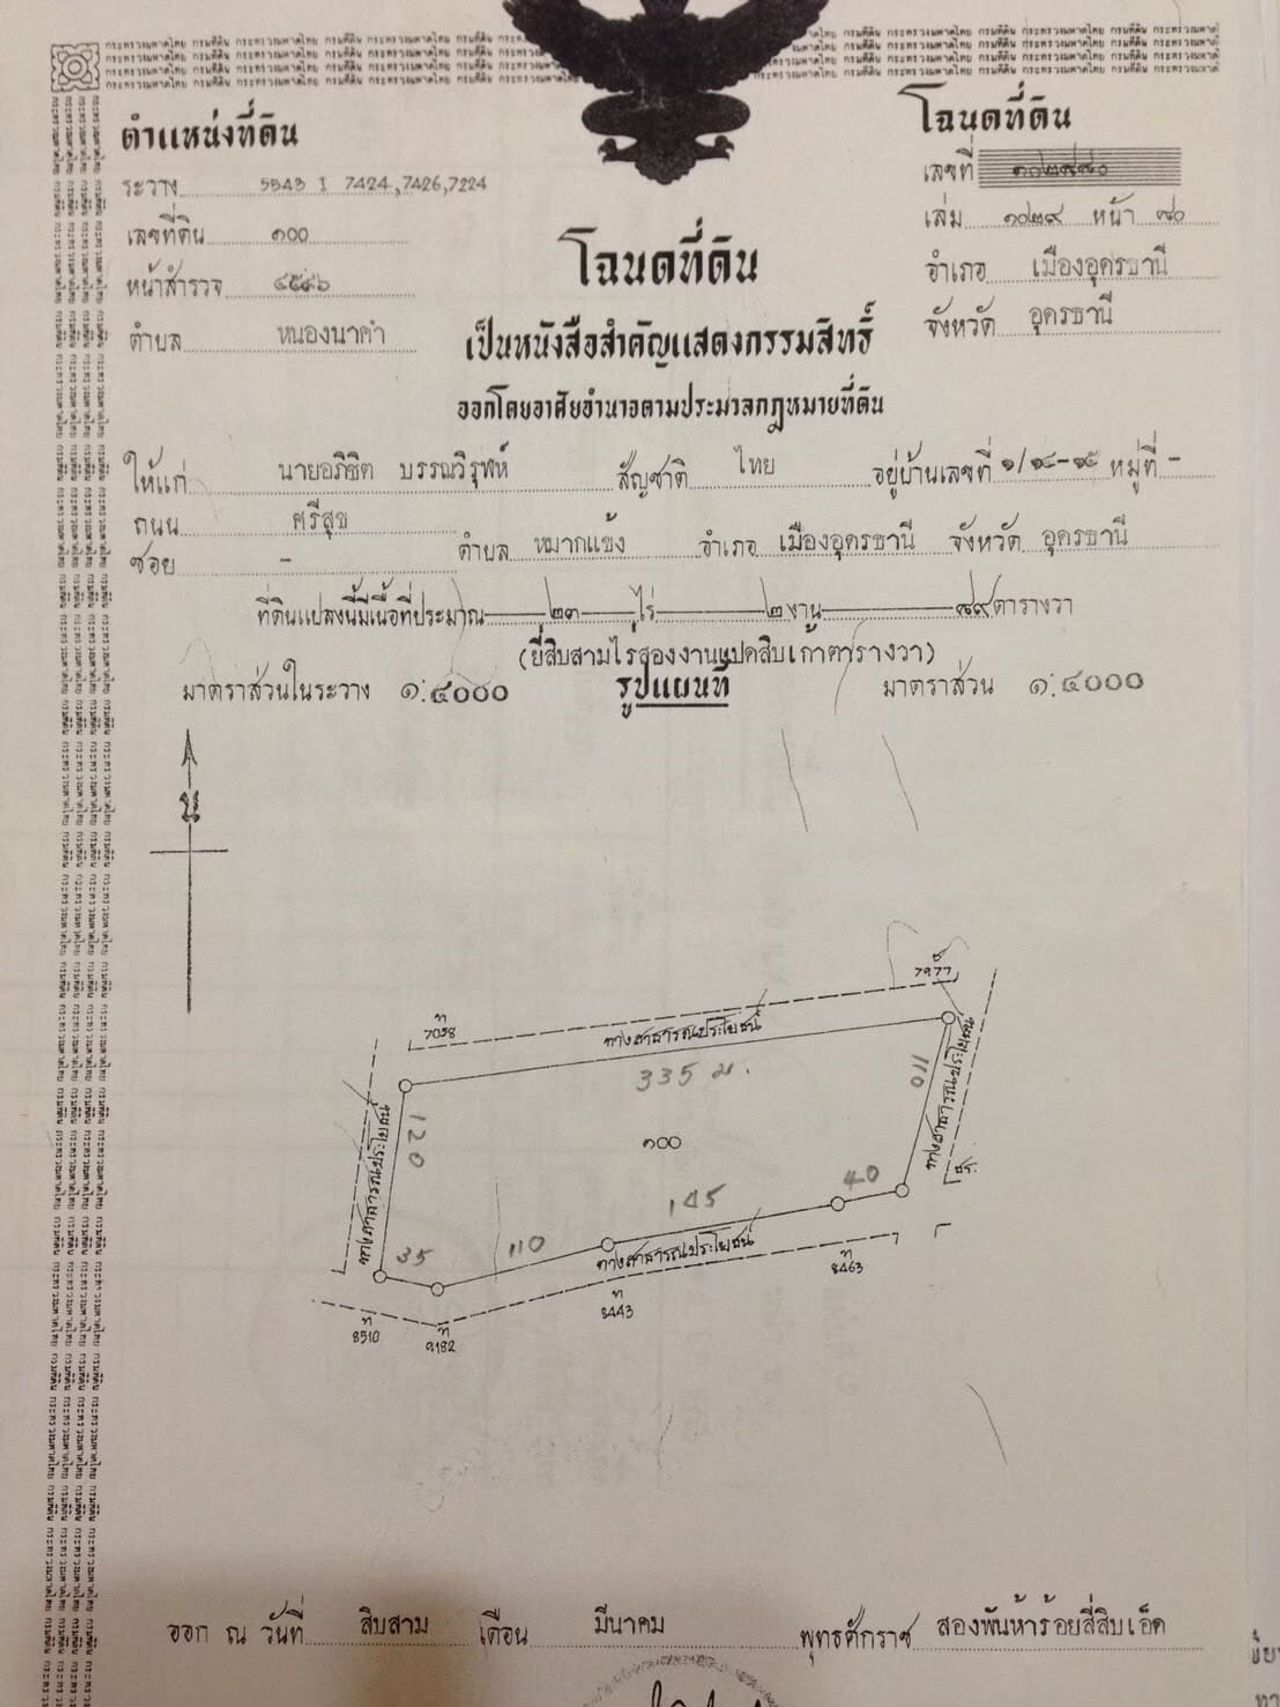 ตำแหน่งที่ดิน
ระวาง 5543 I 7424,7426,7224
เลขที่ดิน ๑๐๐
หน้าสำรวจ ๔๕๔๖
ตำบล หนองนาคำ
โฉนดที่ดิน
เลขที่
เล่ม ๑๐๒๙ หน้า ๘๐
อำเภอ เมืองอุดรธานี
จังหวัด อุดรธานี
โฉนดที่ดิน
เป็นหนังสือสำคัญแสดงกรรมสิทธิ์
ออกโดยอาศัยอำนาจตามประมวลกฎหมายที่ดิน
ให้แก่ นายอภิชิต บรรณวิรุฬห์ สัญชาติ ไทย อยู่บ้านเลขที่ ๑/๑๔-๑๕ หมู่ที่ -
ถนน ศรีสุข
ซอย - ตำบล หมากแข้ง อำเภอ เมืองอุดรธานี จังหวัด อุดรธานี
ที่ดินแปลงนี้มีเนื้อที่ประมาณ ๒๓ ไร่ ๒ งาน ๘๙ ตารางวา
(ยี่สิบสามไร่สองงานแปดสิบเก้าตารางวา)
มาตราส่วนในระวาง ๑:๔๐๐๐ รูปแผนที่ มาตราส่วน ๑:๔๐๐๐
น
7977
ท
7058
ทางสาธารณประโยชน์
335 ม.
110
ทางสาธารณประโยชน์
120
ทางสาธารณประโยชน์
๑๐๐
40
145
110
35
ทางสาธารณประโยชน์
ท
8463
ท
8443
ท
8510
ท
9182
ออก ณ วันที่ สิบสาม เดือน มีนาคม พุทธศักราช สองพันห้าร้อยสี่สิบเอ็ด